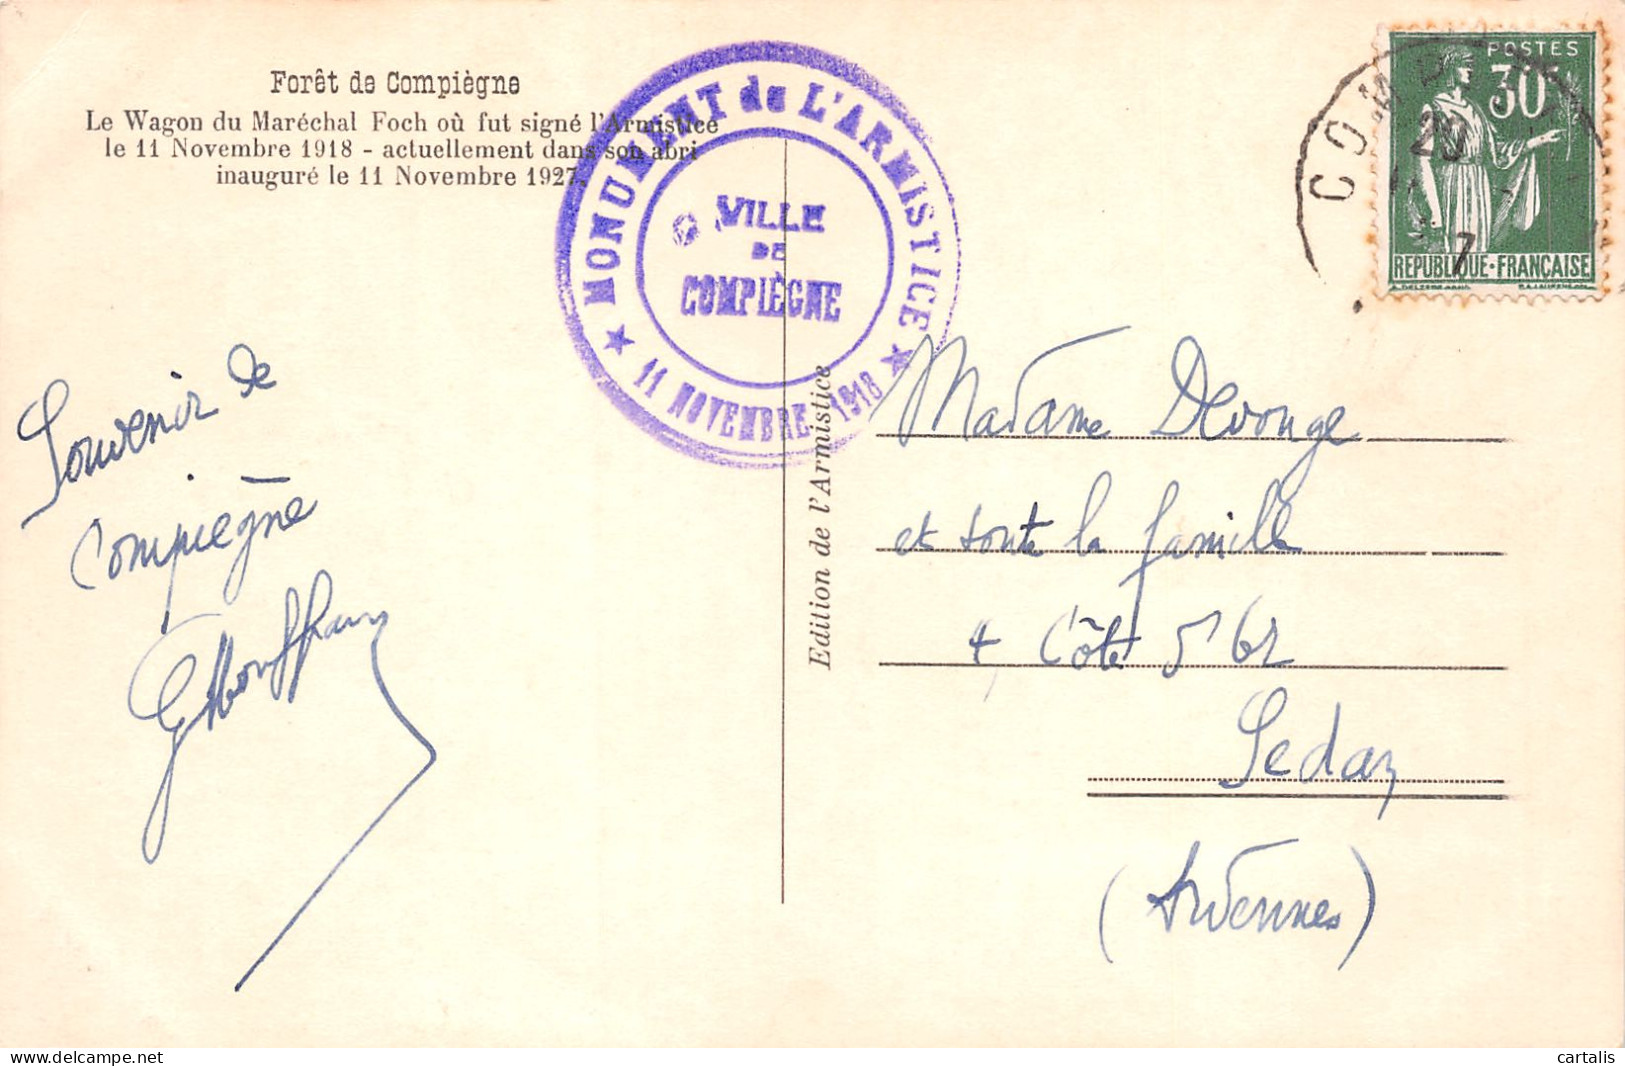 Forêt de Compiègne
Le Wagon du Maréchal Foch où fut signé l'Armistice
le 11 Novembre 1918 - actuellement dans son abri
inauguré le 11 Novembre 1927.
MONUMENT de L'ARMISTICE
★ 11 NOVEMBRE 1918 ★
VILLE
DE
COMPIÈGNE
COMP
20
7
POSTES
30
REPUBLIQUE·FRANÇAISE
Edition de l'Armistice
Souvenir de
Compiègne
Madame Devonge
et toute la famille
4 Côte
Sedan
(Ardennes)
cartalis